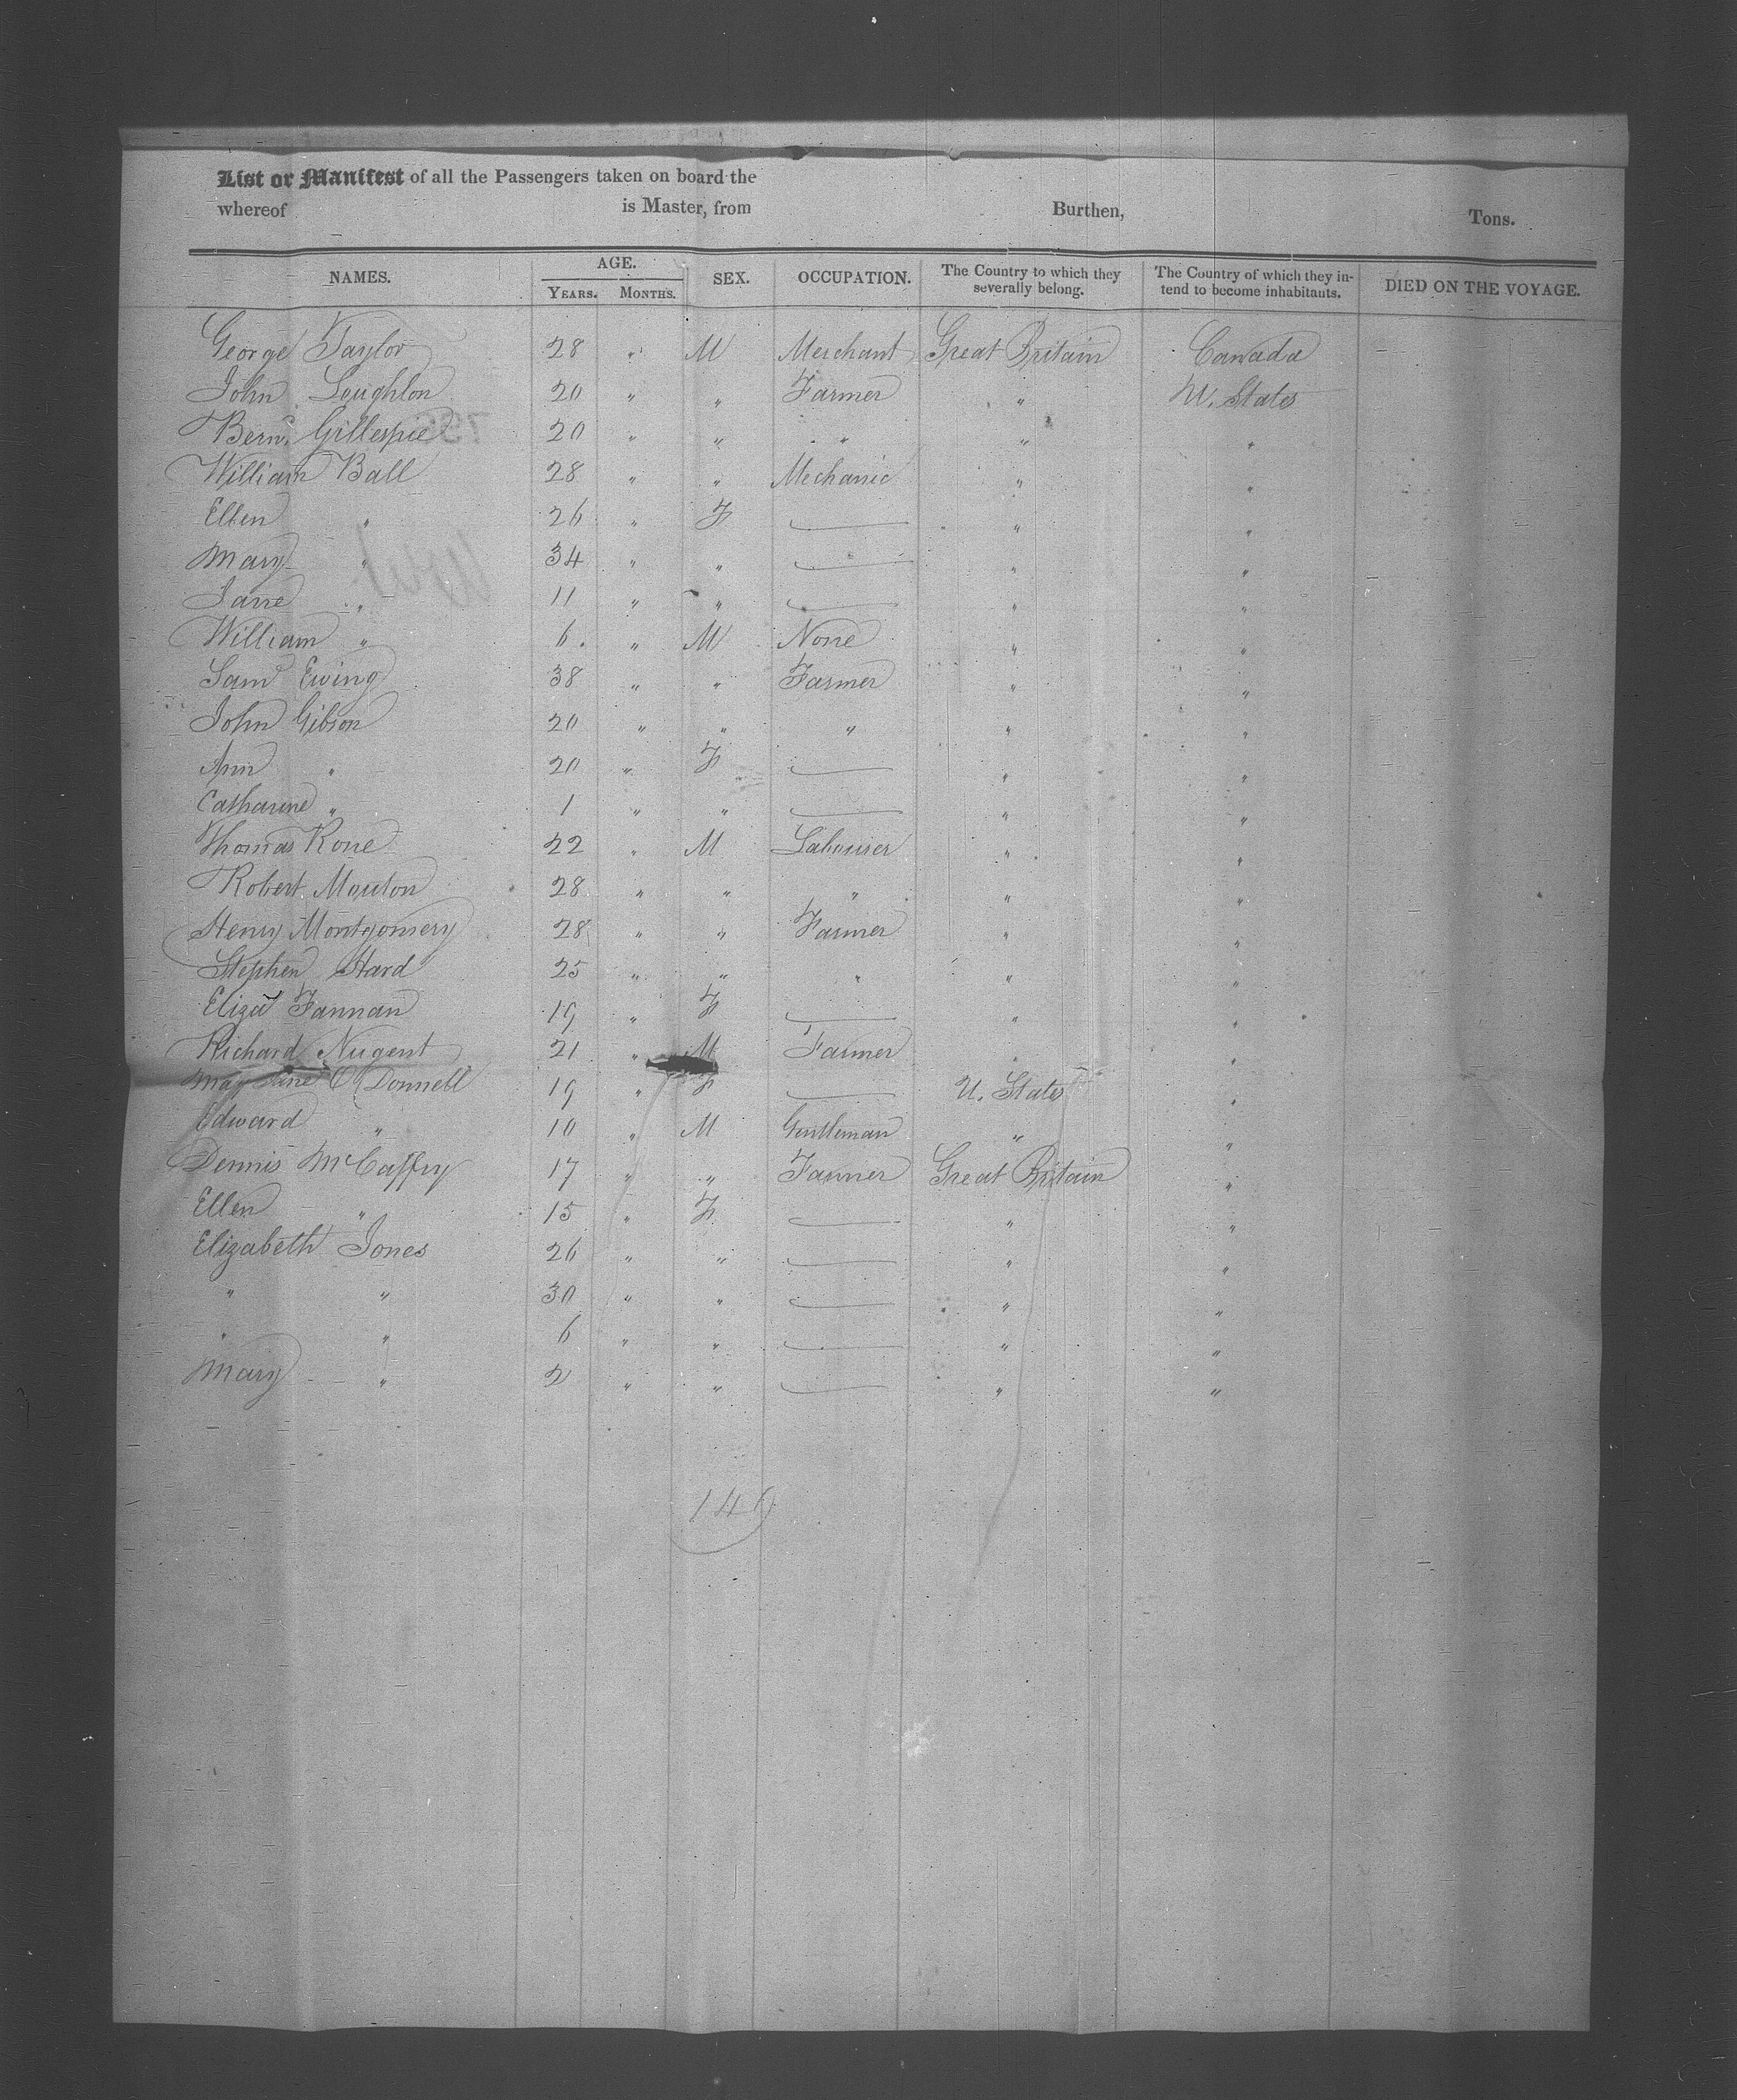 List or Manifest of all the Passengers taken on board the
whereof is Master, from Burthen, Tons.
NAMES. AGE. SEX. OCCUPATION. The Country to which they severally belong. The Country of which they in-tend to become inhabitants. DIED ON THE VOYAGE.
YEARS. MONTHS.
George Taylor 28 " M Merchant Great Britain Canada
John Loughlon 20 " " Farmer " U. States
Bernd. Gillespie 20 " " " " "
William Ball 28 " " Mechanic " "
Ellen " 26 " F — " "
Mary " 34 " " — " "
Jane " 11 " " — " "
William " 6. " M None " "
Saml Ewing 38 " " Farmer " "
John Gibson 20 " " " " "
Ann " 20 " F — " "
Catharine " 1 " " — " "
Thomas Rone 22 " M Labourer " "
Robert Mouton 28 " " " " "
Henry Montgomery 28 " " Farmer " "
Stephen Hard 25 " " " " "
Eliza Fannan 19 " F — " "
Richard Nugent 21 " M Farmer " "
May Jane O'Donnell 19 " F — U. States "
Edward " 10 " M Gentleman " "
Dennis McCaffry 17 " " Farmer Great Britain "
Ellen " 15 " F — " "
Elizabeth Jones 26 " " — " "
" " 30 " " — " "
" " 6 " " — " "
Mary " 2 " " — " "